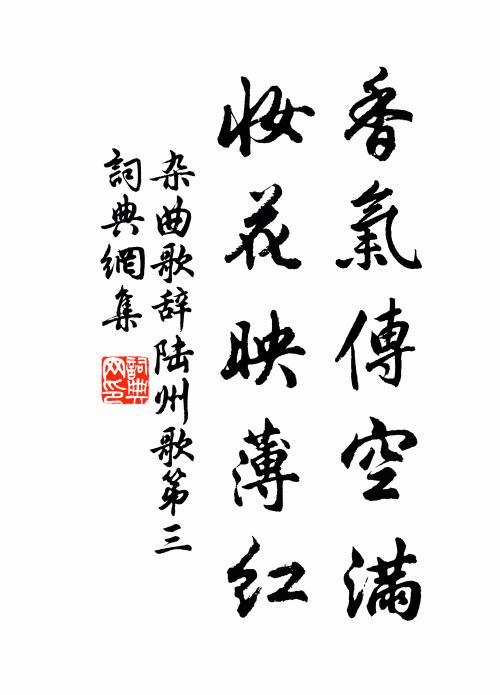 香氣傳空滿
妝花映薄紅
杂曲歌辞陆州歌第三
詞典網集
詞典網印